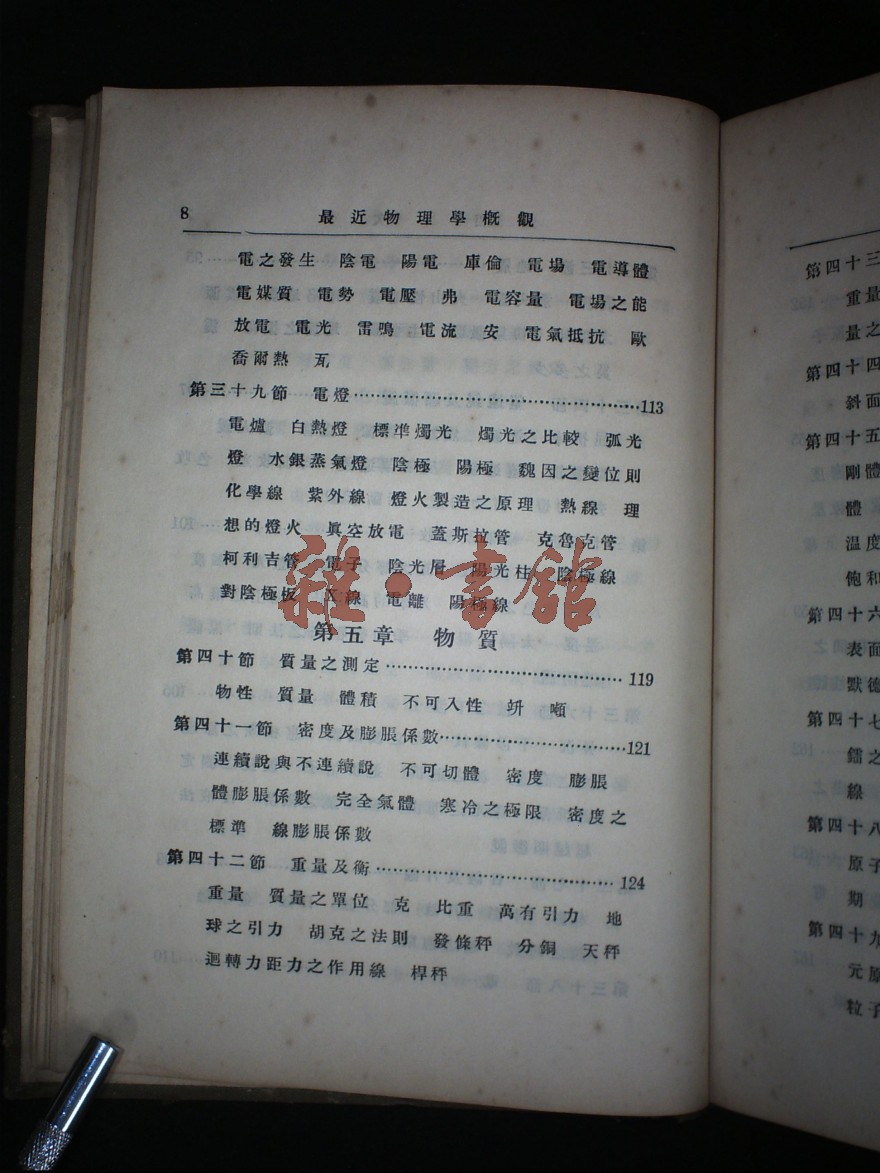 8 最近物理學槪觀
電之發生 陰電 陽電 庫倫 電場 電導體
電媒質 電勢 電壓 弗 電容量 電場之能
放電 電光 雷鳴 電流 安 電氣抵抗 歐
喬爾熱 瓦
第三十九節 電燈……113
電爐 白熱燈 標準燭光 燭光之比較 弧光
燈 水銀蒸氣燈 陰極 陽極 魏因之變位則
化學線 紫外線 燈火製造之原理 熱線 理
想的燈火 眞空放電 蓋斯拉管 克魯克管
柯利吉管 電子 陰光層 陽光柱 陰極線
對陰極板 X線 電離 陽極線
雜·書館
第五章 物質
第四十節 質量之測定……119
物性 質量 體積 不可入性 竔 噸
第四十一節 密度及膨脹係數……121
連續說與不連續說 不可切體 密度 膨脹
體膨脹係數 完全氣體 寒冷之極限 密度之
標準 線膨脹係數
第四十二節 重量及衡……124
重量 質量之單位 克 比重 萬有引力 地
球之引力 胡克之法則 發條秤 分銅 天秤
迴轉力距力之作用線 桿秤
第四十三
重量
量之
第四十四
斜面
第四十五
剛體
體
溫度
飽和
第四十六
表面
默德
第四十七
鐳之
線
第四十八
原子
期
第四十九
元原
粒子